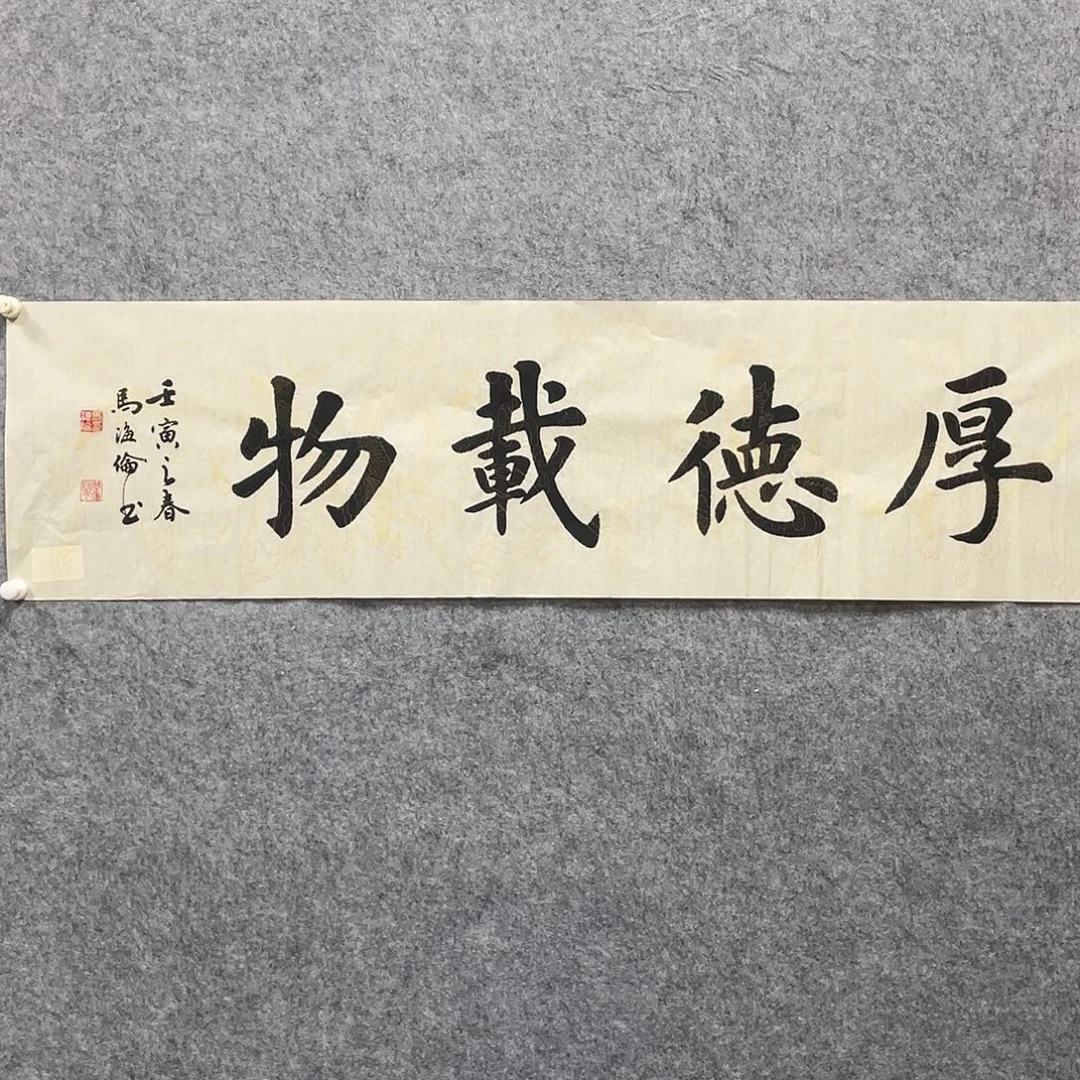 厚德載物
壬寅之春
馬海倫书